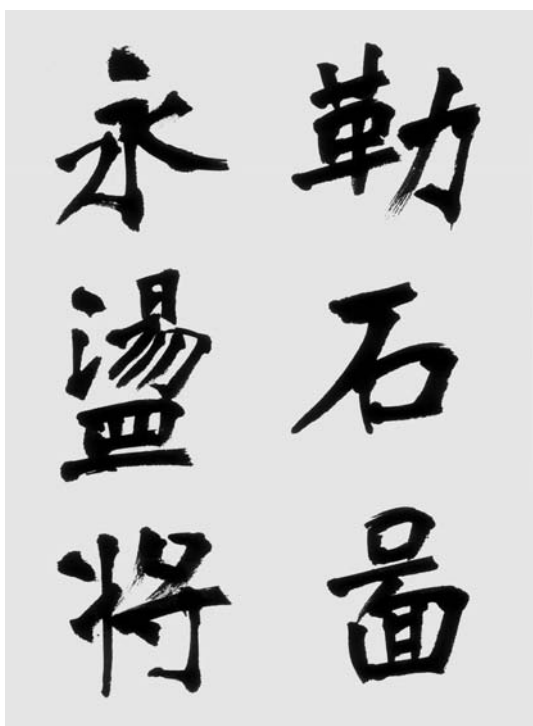 勒石啚
永盪将